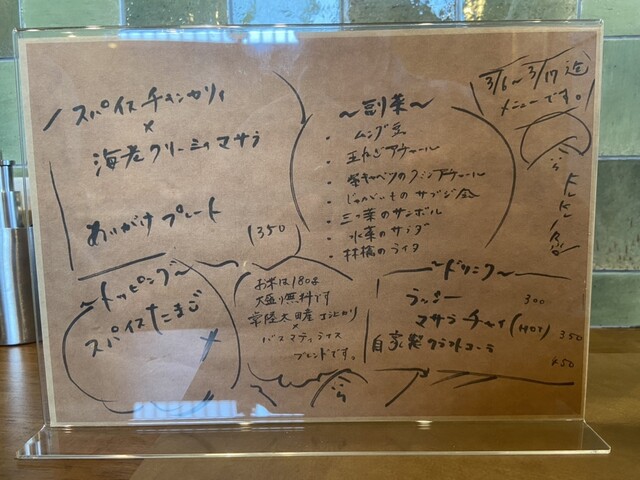 スパイスチキンカリィ
×
海老クリーミィマサラ
あいがけプレート
1350
〜副菜〜
・ムング豆
・玉ねぎアチャール
・紫キャベツのクミンアチャール
・じゃがいものサブジ
・三つ葉のサンボル
・水菜のサラダ
・林檎のライタ
3/6〜3/17迄
メニューです。
〜トッピング〜
スパイスたまご
お米は180g
大盛り無料です
常陸太田産コシヒカリ
×
バスマティライス
ブレンドです。
〜ドリンク〜
ラッシー 300
マサラチャイ(HOT) 350
自家製クラフトコーラ
450